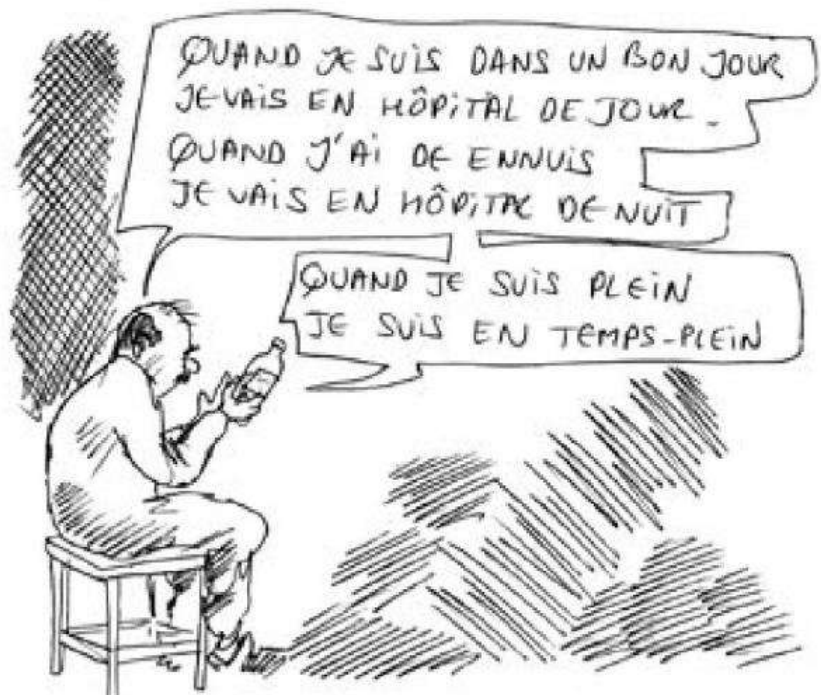 QUAND JE SUIS DANS UN BON JOUR
JE VAIS EN HÔPITAL DE JOUR.
QUAND J'AI DE ENNUIS
JE VAIS EN HÔPITAL DE NUIT
QUAND JE SUIS PLEIN
JE SUIS EN TEMPS-PLEIN